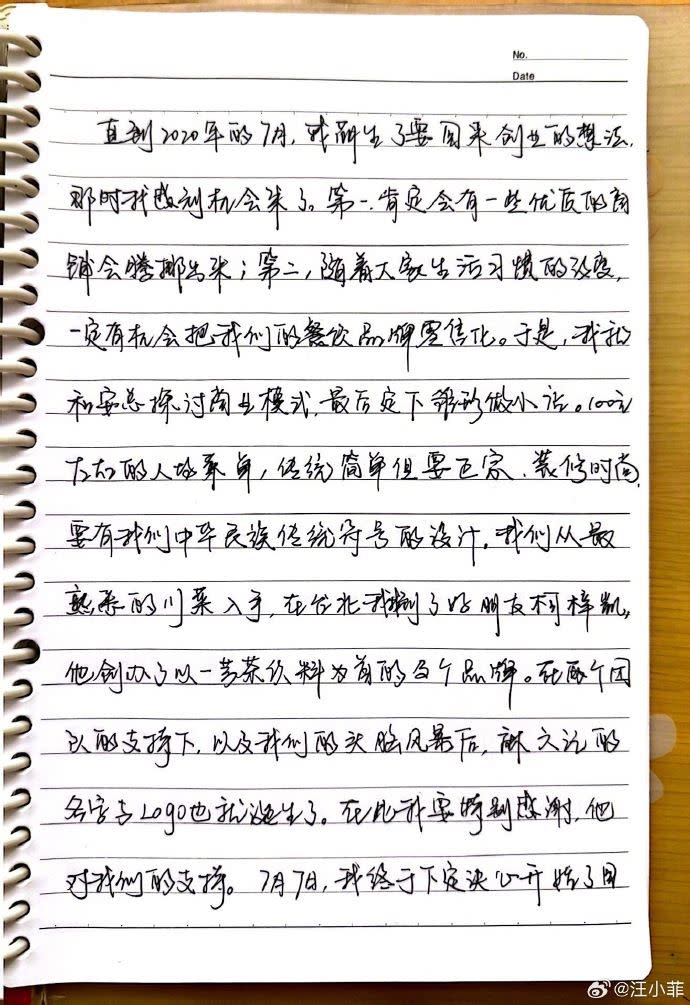 No.
Date
直到2020年的7月，我萌生了要回来创业的想法，
那时我感到机会来了。第一，肯定会有一些优质的商
铺会腾挪出来；第二，随着大家生活习惯的改变，
一定有机会把我们的餐饮品牌零售化。于是，我就
和安总探讨商业模式，最后定下雏形做小店。100元
左右的人均菜单，传统简单但要正宗、装修时尚，
要有我们中华民族传统符号的设计。我们从最
熟悉的川菜入手，在台北我找到了好朋友柯梓凯，
他创办了以一芳茶饮料为首的多个品牌。在两个团
队的支持下，以及我们的头脑风暴后，麻六记的
名字与Logo也就诞生了。在此我要特别感谢，他
对我们的支持。7月7日，我终于下定决心开始了回
@汪小菲